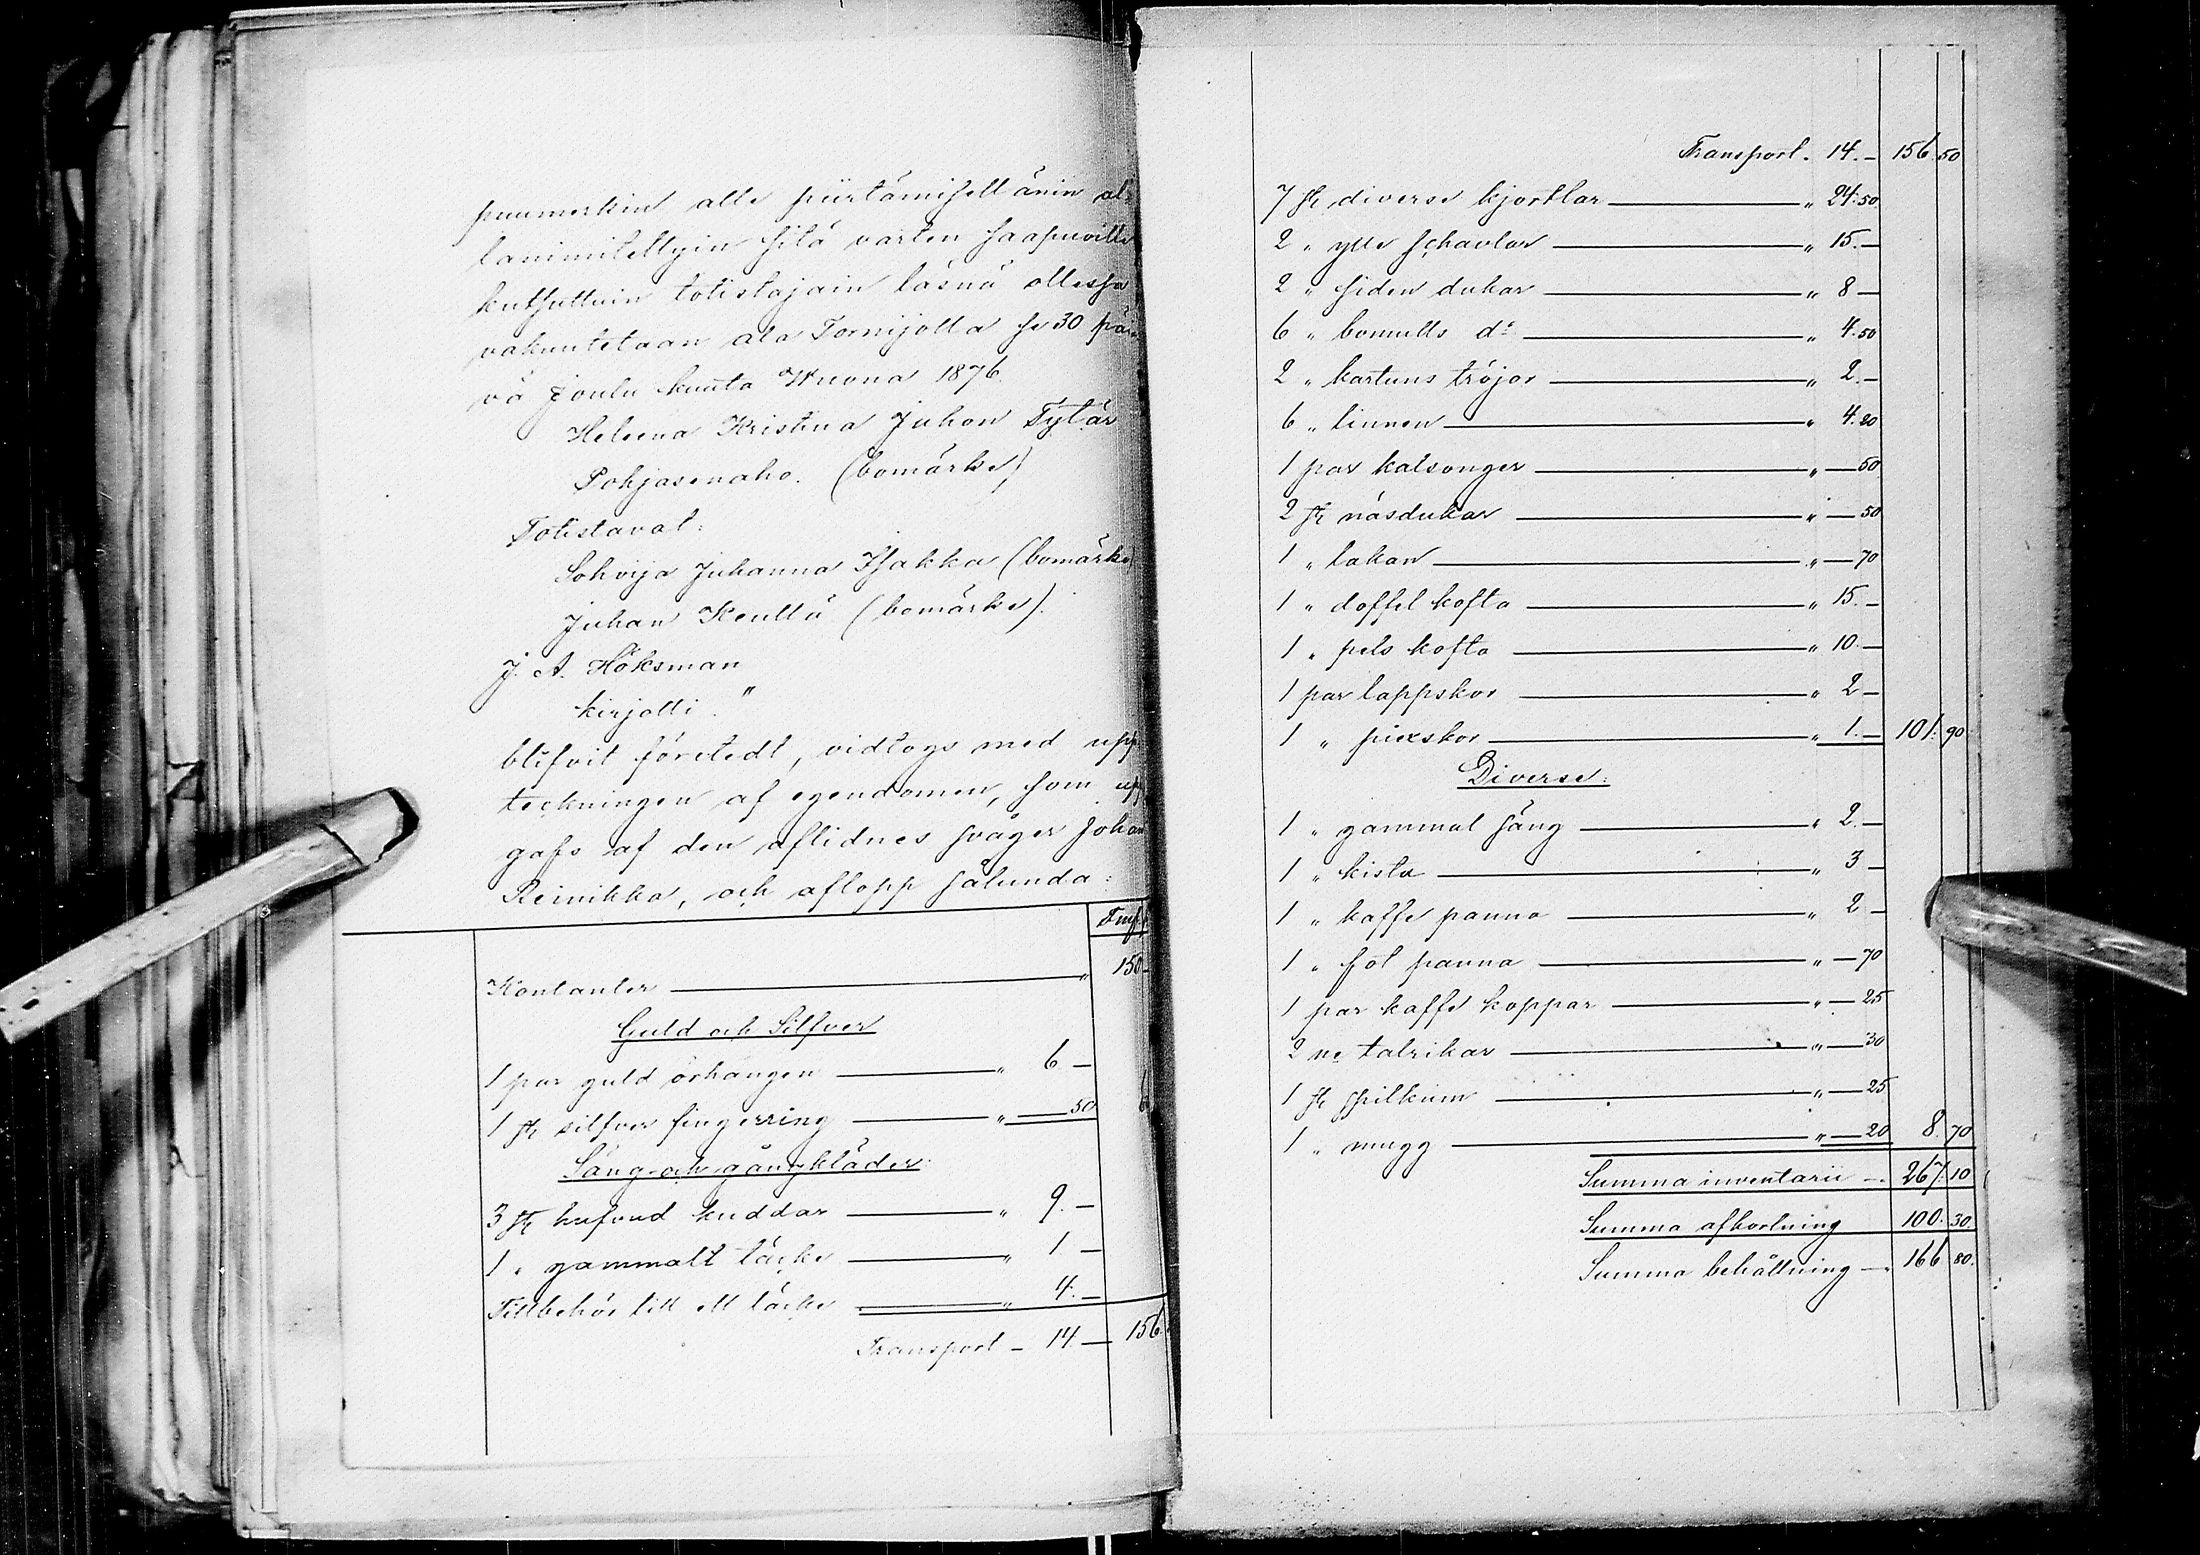 puumerkin alle piirtämisellänin al-
lanimitettyin sitä varten saapuville
kutsuttuin totistajain läsnä ollessa
vakuutetaan ala Tornijolla se 30 päi-
vä Joulu kuuta Wuona 1876.
Heleena Kristina Juhon Tytär
Pohjasenaho. (bomärke)
Totistavat:
Sohvija Juhanna Isakka (bomärke)
Juhan Kenttä (bomärke).
J. A. Höksman
kirjotti."
blifvit företedt, vidtogs med upp-
teckningen af egendomen, som upp
gafs af den aflidnes svåger Johan
Reinikka, och aflopp sålunda:
Fmk
Kontanter " 150 –
Guld och Silfver
1 par guld örhängen " 6 –
1 st silfver fingerring " – 50 6
Säng- och gångkläder:
3 st hufvud kuddar " 9. –
1 " gammalt täcke " 1 –
Tillbehör till ett täcke " 4. –
Transport – 14 – 156.
Transport. 14. – 156 50
7 st diverse kjortlar " 24:50
2 " ylle schavlar " 15. –
2 " siden dukar " 8 –
6 " bomulls d:o " 4.50
2 " kartuns tröjor " 2. –
6 " linnen " 4.20
1 par kalsonger " – 50
2 st näsdukar " – 50
1 " lakan " – 70
1 " doffel kofta " 15. –
1 " pels kofta " 10. –
1 par lappskor " 2 –
1 " piexskor " 1. – 101: 90
Diverse:
1 " gammal säng " 2. –
1 " kista " 3 –
1 " kaffe panna " 2 –
1 " fot panna " – 70
1 par kaffe koppar " – 25
2 ne talrikar " – 30
1 st spilkum " – 25
1 " mugg " – 20 8. 70
Summa inventarii – 267: 10
Summa afkortning 100. 30.
Summa behållning – 166 80.